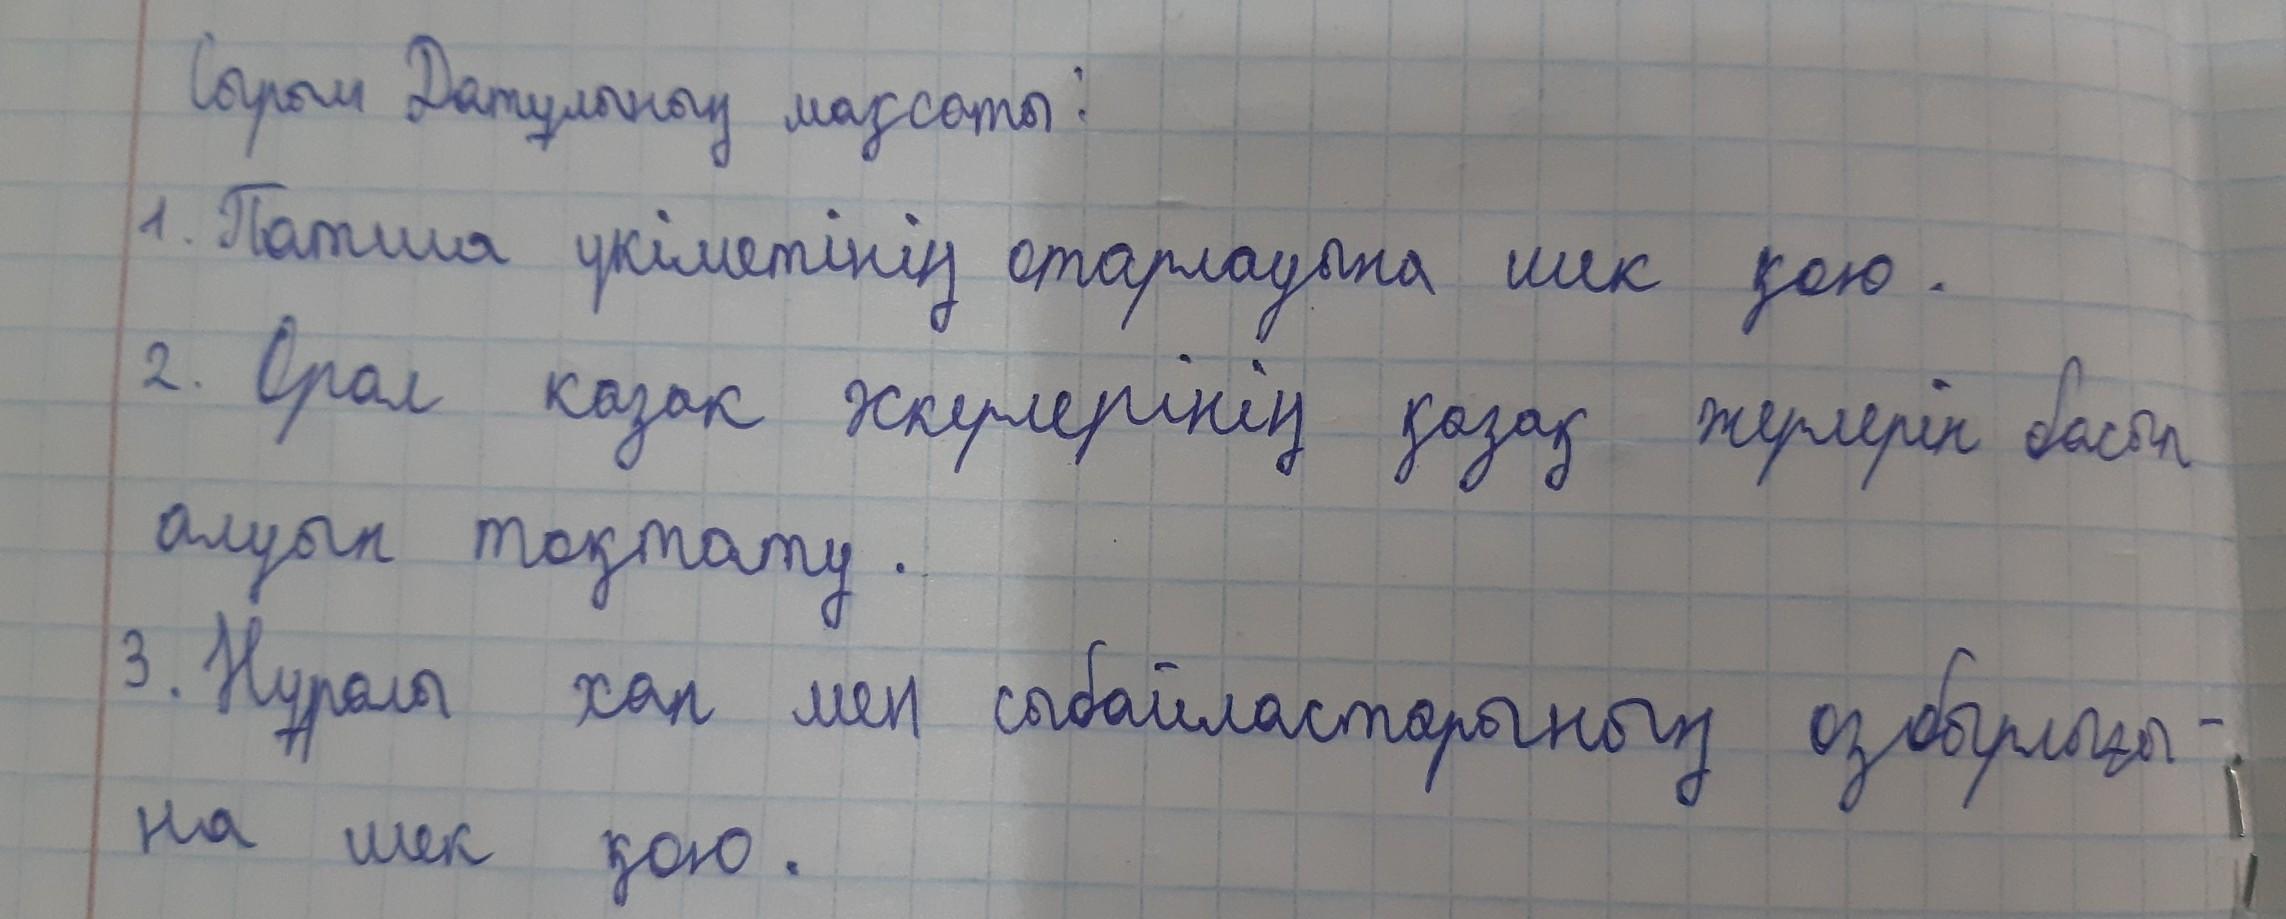 Сырым Датұлының мақсаты:
1. Патша үкіметінің отарлауына шек қою.
2. Орал казак әскерлерінің қазақ жерлерін басып
алуын тоқтату.
3. Нұралы хан мен сыбайластарының озбырлығы-
на шек қою.